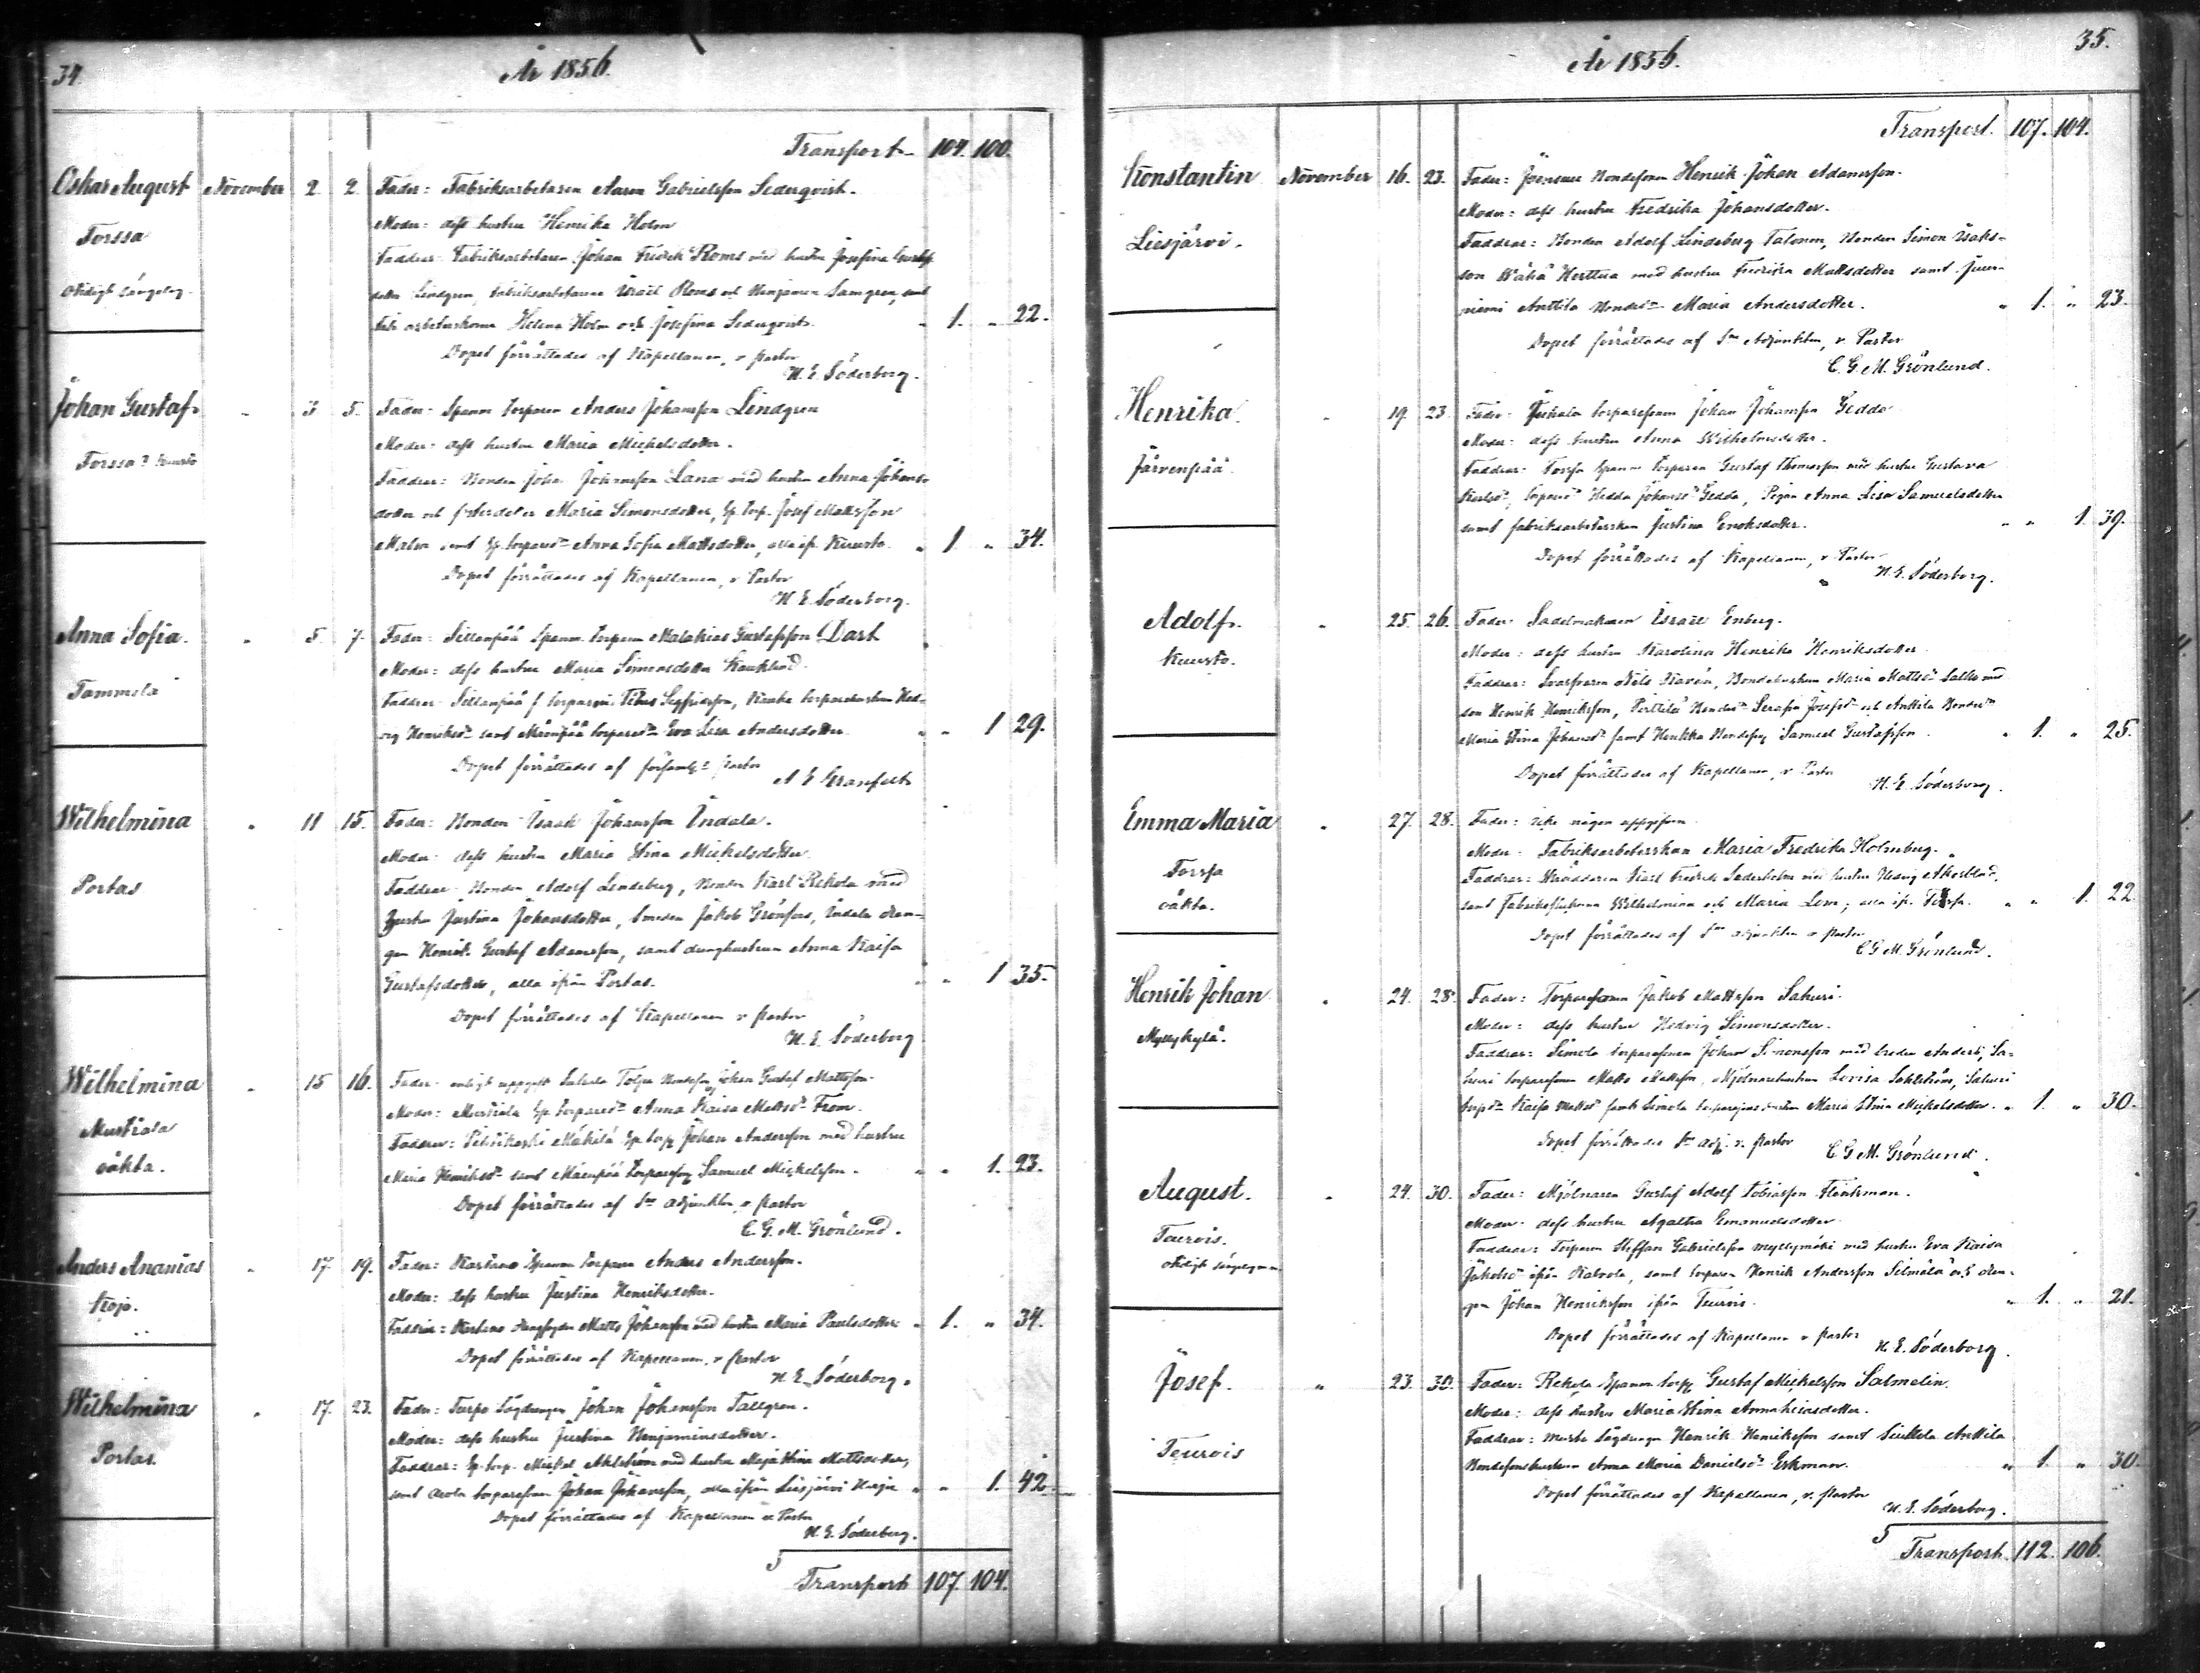 34.
År 1856.
Transport 104. 100.
Oskar August November 2 2. Fader: Fabriksarbetaren Aaron Gabrielsson Sederqvist.
Moder: dess hustru Henrika Holm
Forssa
Faddrar: Fabriksarbetaren Johan Fredrik Roms med hustru Josefina
dotter Lindgren, fabriksarbetarene Israël Roms och Benjamin Samgren, samt
arbeterskorna Helena Holm och Josefina Sederqvist. " 1. " 22.
Dopet förrättades af Kapellanen, v. Pastor
H. E. Söderborg.
Johan Gustaf. " 3 5. Fader: Spanm. torparen Anders Johansson Lindgren
Moder: dess hustru Maria Mickelsdotter.
Forssa
Faddrar: Bonden Johan Johansson Lana med hustru Anna Johans-
dotter och Maria Simonsdotter, Sp. torp. Josef Mattsson
Malm samt Sp. torpared:r Anna Sofia Mattsdotter, alla ifr. Kuusto. " 1. " 34.
Dopet förrättades af Kapellanen, v. Pastor
H. E. Söderborg.
Anna Sofia. " 5. 7. Fader: Sillanpää Spanm. torparen Malakias Gustafsson Dart
Moder: dess hustru Maria Simonsdotter
Tammela
Faddrar: Sillanpää torparen Titus Sigfridsson, torparehustrun Hed-
vig Henriksd:r samt Mäenpää torpared:r Eva Lisa Andersdotter " " 1 29.
Dopet förrättades af Pastor
A E Granfelt
Wilhelmina " 11 15. Fader: Bonden Isaak Johansson Indala.
Moder: dess hustru Maria Stina Mickelsdotter
Portas
Faddrar: Bonden Adolf Lindeberg, Bonden Karl Rekola med
hustru Justina Johansdotter, Smeden Jakob Grönfors, Indala drän-
gen Henrik Gustaf Adamsson, samt drenghustrun Anna Kaisa
Gustafsdotter, alla ifrån Portas. " " 1 35.
Dopet förrättades af Kapellanen v. Pastor
H. E. Söderborg
Wilhelmina " 15 16. Fader: enligt uppgift Tolpo Bondeson Johan Gustaf Mattsson.
Moder: Mustiala Sp. torpared:r Anna Kaisa Mattsd:r From.
Mustiala
oäkta.
Faddrar: Mäkilä Sp. torp. Johan Andersson med hustru
Maria Henriksd:r samt Mäenpää torpareson Samuel Mickelsson. " " 1. 23.
Dopet förrättades af S:ne adjunkten, v. Pastor
C. G. M. Grönlund.
Anders Ananias " 17. 19. Fader: Kartano Spanm. torparen Anders Andersson.
Moder: dess hustru Justina Henriksdotter.
Kojo.
Faddrar: Kartano Matts Johansson med hustru Maria Paulsdotter " 1. " 34.
Dopet förrättades af Kapellanen, v. Pastor
H. E. Söderborg.
Wilhelmina " 17. 23. Fader: Turpo Johan Johansson Tallgren.
Moder: dess hustru Justina Benjaminsdotter.
Portas.
Faddrar: Sp. torp. Mickel Ahlström med hustru Maja Stina Mattsdotter,
samt torparesonen Johan Johansson, alla ifrån Liesjärvi " " 1. 42.
Dopet förrättades af Kapellanen v. Pastor
H. E. Söderborg.
5
Transport 107. 104.
35.
År 1856.
Transport. 107. 104.
Konstantin November 16. 23. Fader: Bondesonen Henrik Johan Adamsson.
Moder: dess hustru Fredrika Johansdotter.
Liesjärvi.
Faddrar: Bonden Adolf Lindeberg Talonen, Bonden Simon Isaks-
son Wähä Herttua med hustru Fredrika Mattsdotter samt
Anttila Bonded:r Maria Andersdotter. " 1. " 23.
Dopet förrättades af S:ne Adjunkten, v. Pastor
C. G. M. Grönlund.
Henrika. " 19. 23. Fader: torparesonen Johan Johansson Gedda
Moder: dess hustru Anna Wilhelmsdotter.
Järvenpää.
Faddrar: Spanm. torparen Gustaf Thomasson med hustru Gustava
Hedda Johansd:r Gedda, Pigan Anna Lisa Samuelsdotter
samt fabriksarbeterskan Justina Enoksdotter. " " 1. 39.
Dopet förrättades af Kapellanen, v. Pastor
H. E. Söderborg.
Adolf. " 25. 26. Fader: Sadelmakaren Israël Enberg.
Moder: dess hustru Karolina Henrika Henriksdotter
Kuusto.
Faddrar: Svarfvaren Nils Bondehustrun Maria Mattsd:r med
son Henrik Henriksson, Perttilä Bonded:r Serafia Josefsd:r och Anttila Bonded:r
Maria Stina Johansd:r samt Bondeson Samuel Gustafsson. " 1. " 25.
Dopet förrättades af Kapellanen, v. Pastor
H. E. Söderborg.
Emma Maria " 27. 28. Fader: icke någon uppgifven.
Moder: Fabriksarbeterskan Maria Fredrika Holmberg.
Forssa
oäkta.
Faddrar: Karl Fredrik Sederholm med hustru Hedvig Åkerblad,
samt Wilhelmina och Maria; alla ifr. Forssa. " " 1. 22.
Dopet förrättades af S:ne adjunkten v. Pastor
C G M. Grönlund.
Henrik Johan " 24. 28. Fader: Torparesonen Jakob Mattsson Sahuri.
Moder: dess hustru Hedvig Simonsdotter.
Myllykylä.
Faddrar: Simola torparesonen Johan Simonsson med broder Anders, Sa-
huri torparesonen Matts Mattsson, Mjölnarehustrun Lovisa Sahlström, Sahuri
torpd:r Kaisa Mattsd:r samt Simola Maria Stina Mickelsdotter. " 1. " 30.
Dopet förrättades S:ne adj. v. Pastor C G M. Grönlund.
August. " 24. 30. Fader: Mjölnaren Gustaf Adolf Tobiasson Flinkman.
Moder: dess hustru Agatha Emanuelsdotter
Teurois.
Faddrar: Torparen Steffan Gabrielsson Myllymäki med hustru Eva Kaisa
Jakobsd:r ifrån Kalvola, samt torparen Henrik Andersson och drän-
gen Johan Henriksson ifrån Teurois. " 1. " 21.
Dopet förrättades af Kapellanen v. Pastor
H. E. Söderborg.
Josef. " 23. 30. Fader: Rekola Spanm. torp. Gustaf Mickelsson Salmelin.
Moder: dess hustru Maria Stina
Teurois
Faddrar: Henrik Henriksson samt Anttila
Bondesonshustrun Anna Maria Danielsd:r Eskman. " 1. " 30.
Dopet förrättades af Kapellanen, v. Pastor
H. E. Söderborg.
5
Transport 112. 106.